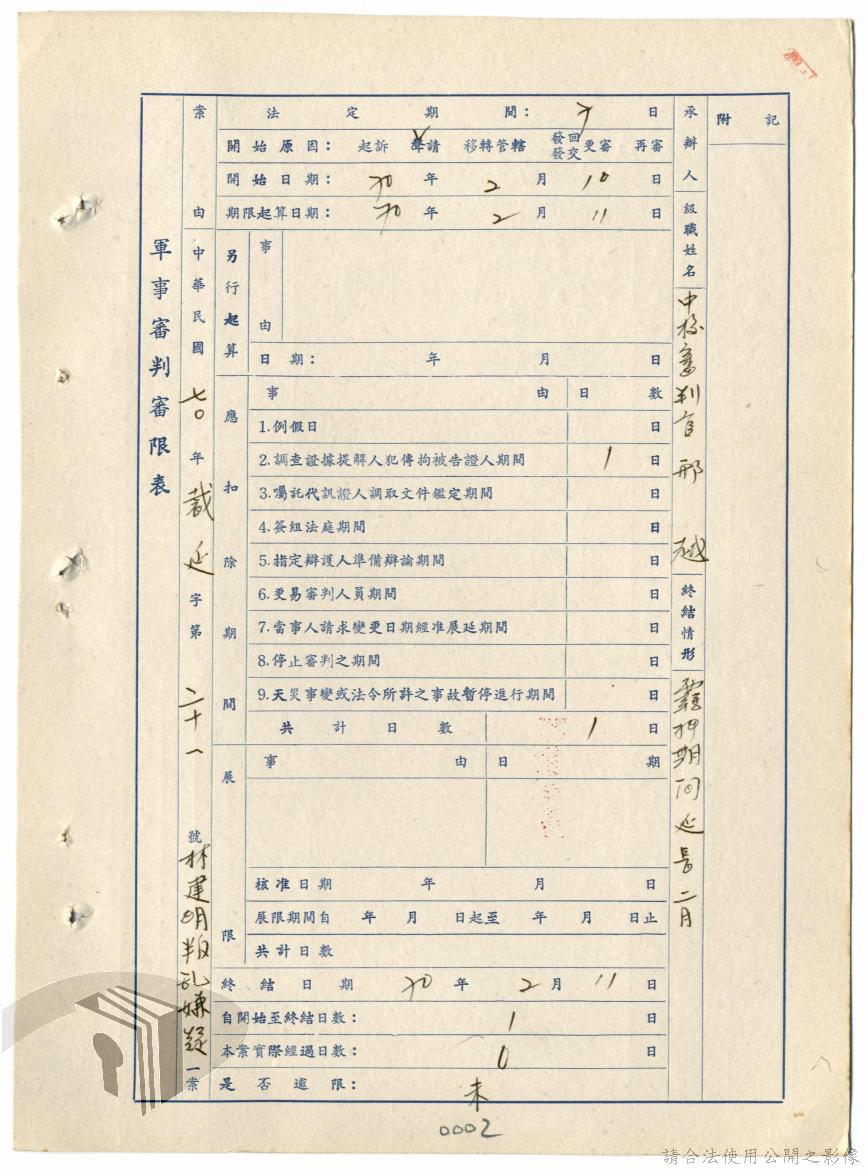 軍事審判審限表
案由 中華民國七〇年裁延字第二十一號林建明判亂嫌疑一案
法定期間： 日
開始原因： 起訴 聲請 移轉管轄 發回發交更審 再審
開始日期： 70年2月10日
期限起算日期： 70年2月11日
另行起算
事由
日期： 年 月 日
應扣除期間
事由 日數
1.例假日 日
2.調查證據提解人犯傳拘被告證人期間 1日
3.囑託代訊證人調取文件鑑定期間 日
4.簽組法庭期間 日
5.指定辯護人準備辯論期間 日
6.更易審判人員期間 日
7.當事人請求變更日期經准展延期間 日
8.停止審判之期間 日
9.天災事變或法令所許之事故暫停進行期間 日
共計日數 1日
展限
事由 日期
核准日期 年 月 日
展限期間自 年 月 日起至 年 月 日止
共計日數
終結日期 70年2月11日
自開始至終結日數： 1日
本案實際經過日數： 0日
是否逾限： 未
承辦人級職姓名 中校審判官 邢 越
終結情形 羈押期间延長二月
附記
0002
請合法使用公開之影像